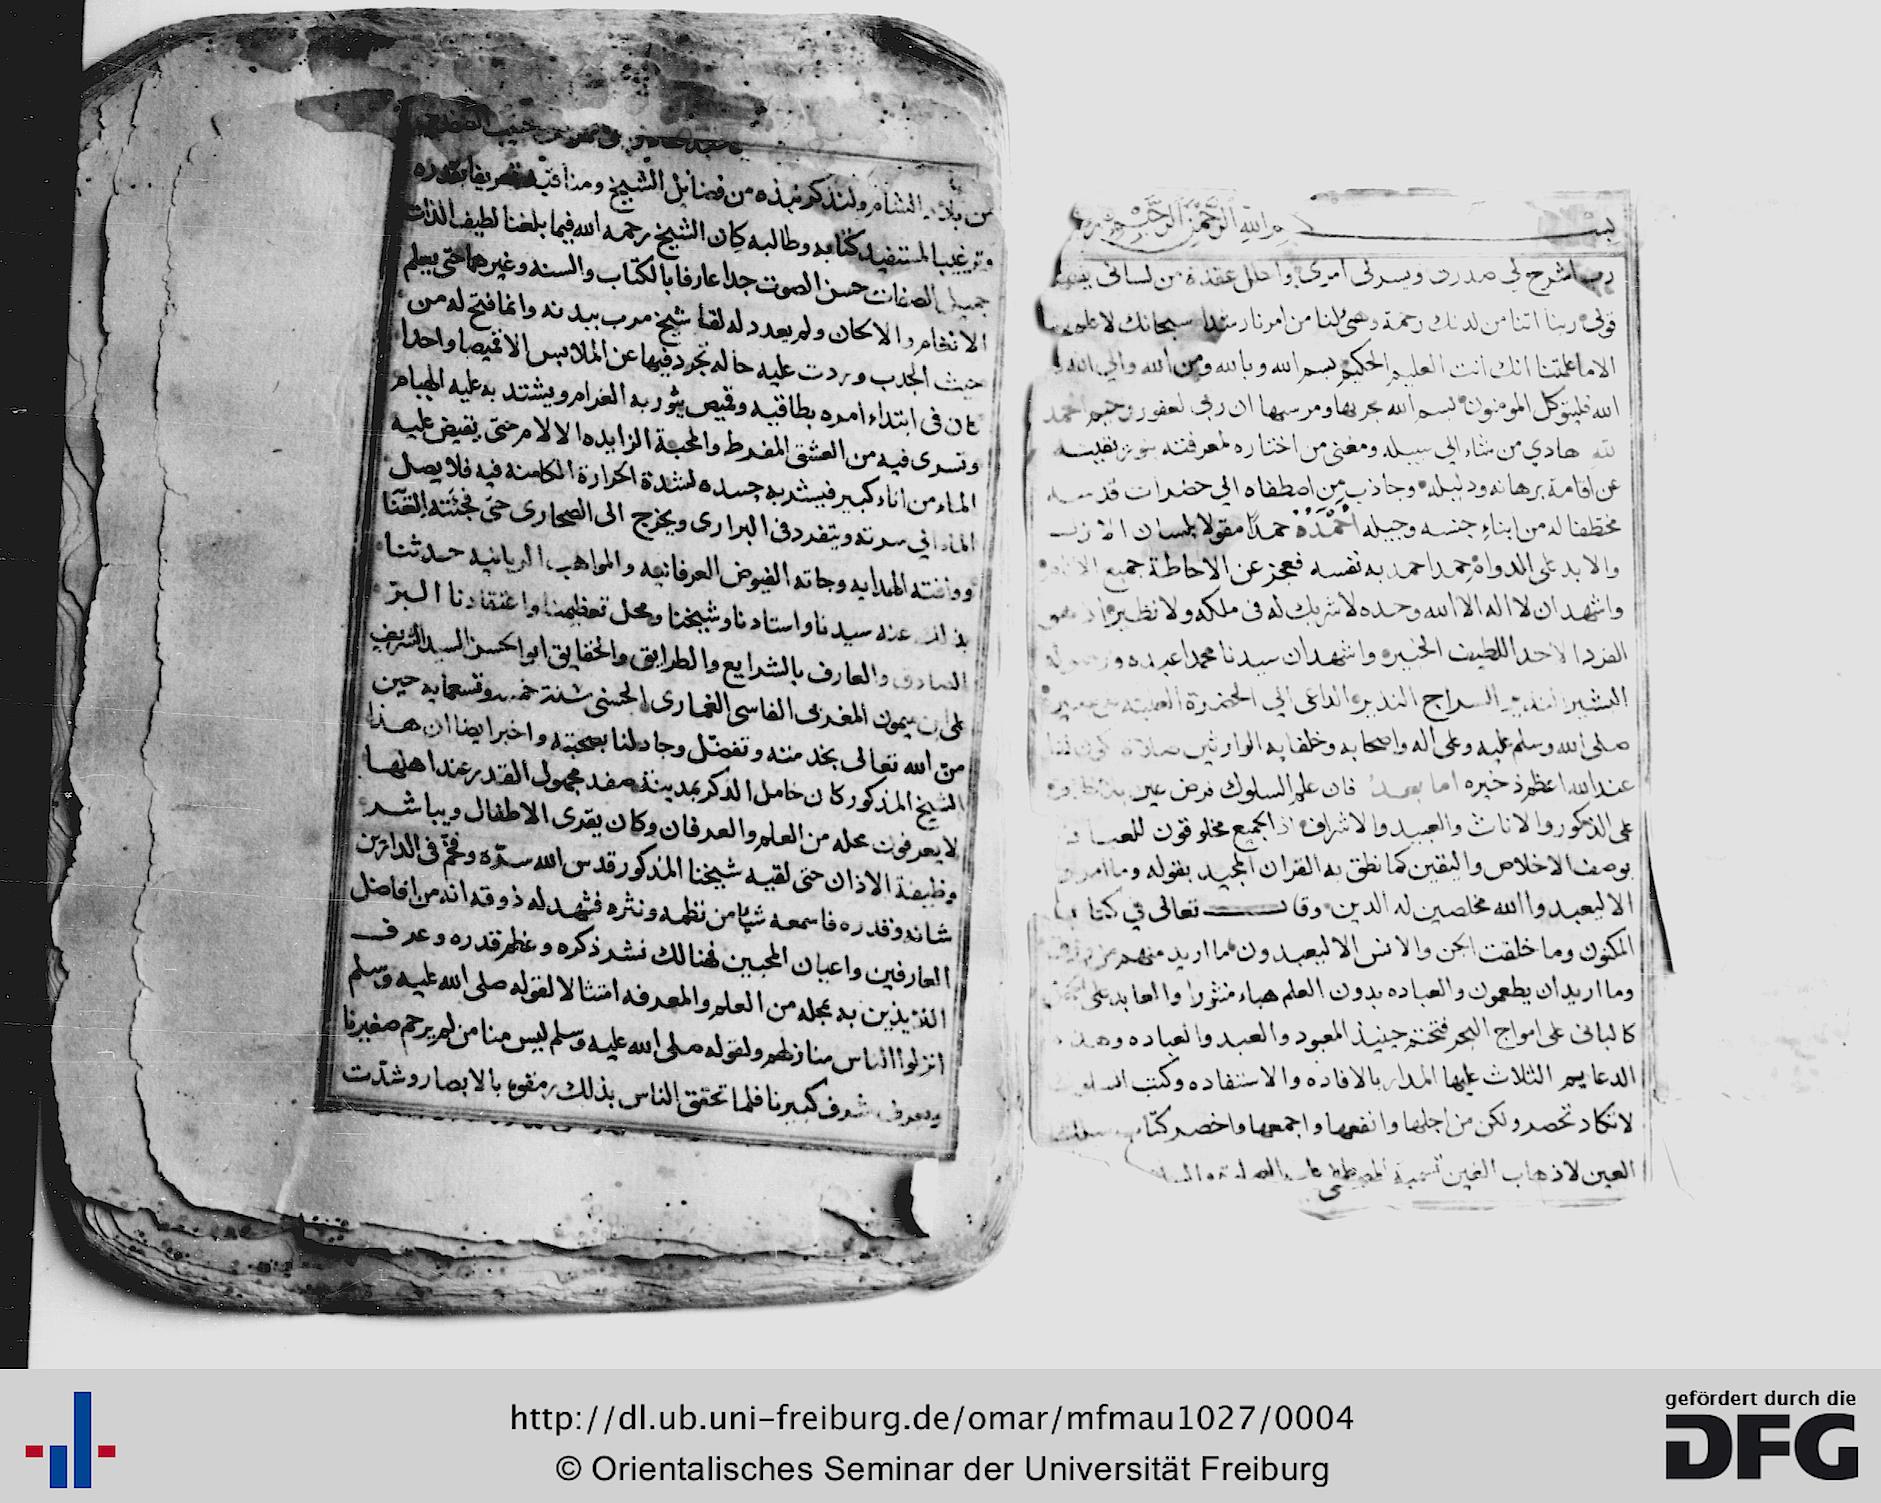 بسم الله الرحمن الرحيم
رب اشرح لي صدرى ويسر لى امرى واحلل عقدة من لسانى يفقهوا
قولى ربنا اتنا من لدنك رحمة وهيئ لنا من امرنا رشدا سبحانك لا علم لنا
الا ما علمتنا انك انت العليم الحكيم بسم الله وبالله ومن الله والى الله
الله فليتوكل المومنون بسم الله مجريها ومرسيها ان ربى لغفور رحيم الحمد
لله هادي من شاء الي سبيله ومغنى من اختاره لمعرفته
عن اقامة برهانه ودليله وجاذب من اصطفاه الي حضرات قدسه
مختطفا له من ابناء جنسه وجيله احمده حمدا مقولا بلسان الازل
والابد على الدوام حمدا حمد به نفسه فعجز عن الاحاطة جميع الانام
واشهد ان لا اله الا الله وحده لا شريك له فى ملكه ولا نظير
الفرد الاحد اللطيف الخبير واشهد ان سيدنا محمدا عبده ورسوله
البشير النذير السراج المنير الداعى الي الحضرة العلية
صلى الله وسلم عليه وعلى اله واصحابه وخلفايه الوارثين صلاة
عند الله اعظم ذخيره اما بعد فان علم السلوك فرض عين
على الذكور والاناث والعبيد والاشراف اذ الجميع مخلوقون للعبادة
بوصف الاخلاص واليقين كما نطق به القران المجيد بقوله وما امروا
الا ليعبدوا الله مخلصين له الدين وقال تعالى في كتابه
المكنون وما خلقت الجن والانس الا ليعبدون ما اريد منهم من رزق
وما اريد ان يطعمون والعباده بدون العلم هباء منثورا والعابد على الجهل
كالبانى على امواج البحر فتحتم حينيذ المعبود والعبد والعباده وهذه
الدعايم الثلاث عليها المدار بالافاده والاستفاده وكتب السلوك
لا تكاد تحصر ولكن من اجلها وانفعها واجمعها واخصر كتاب سلك
العين لاذهاب الغين تسمية المصطفى عليه الصلوة والسلام
من بلاد الشام ولنذكر نبذه من فضايل الشيخ ومناقبه تعريفا بقدره
وترغيبا لمستفيد كتابه وطالبه كان الشيخ رحمه الله فيما بلغنا لطيف الذات
جميل الصفات حسن الصوت جدا عارفا بالكتاب والسنه وغيرهما حتى يعلم
الانغام والالحان ولم يعدد له لقا شيخ مرب ببدنه وانما فتح له من
حيث الجذب وردت عليه حاله تجرد فيها عن الملابس الا قميصا واحدا
كان فى ابتداء امره بطاقيه وقميص يثور به الغرام ويشتد به عليه الهيام
وتسرى فيه من العشق المفرط والمحبة الزايده الالام حتى يفيض عليه
الماء من اناء كبير فيشربه جسده لشدة الحرارة الكامنه فيه فلا يصل
الماء الي سرته ويتفرد فى البرارى ويخرج الى الصحارى حتى فجئته العنا
ووافته الهدايه وجاته الفيوض العرفانيه والمواهب الربانيه حدثنا
بذلك عنه سيدنا واستادنا وشيخنا ومحل تعظيمنا واعتقادنا البر
الصادق والعارف بالشرايع والطرايق والحقايق ابو الحسن السيد الشريف
على بن ميمون المغربى الفاسى الغمارى الحسنى سنة خمس وتسعمايه حين
من الله تعالى بخدمته وتفضل وجاد لنا بصحبته واخبر ايضا ان هذا
الشيخ المذكور كان خامل الذكر بمدينة صفد مجهول القدر عند اهلها
لا يعرفون محله من العلم والعرفان وكان يقرى الاطفال ويباشر
وظيفة الاذان حتى لقيه شيخنا المذكور قدس الله سره وفخم فى الدارين
شانه وقدره فاسمعه شيا من نظمه ونثره فشهد له ذوقه انه من افاضل
العارفين واعيان المحبين فهنالك نشر ذكره وعظم قدره وعرف
الذين به بمحله من العلم والمعرفه امتثالا لقوله صلى الله عليه وسلم
انزلوا الناس منازلهم ولقوله صلى الله عليه وسلم ليس منا من لم يرحم صغيرنا
ويعرف شرف كبيرنا فلما تحقق الناس بذلك رمقوه بالابصار وشدت
http://dl.ub.uni-freiburg.de/omar/mfmau1027/0004
© Orientalisches Seminar der Universität Freiburg
gefördert durch die
DFG